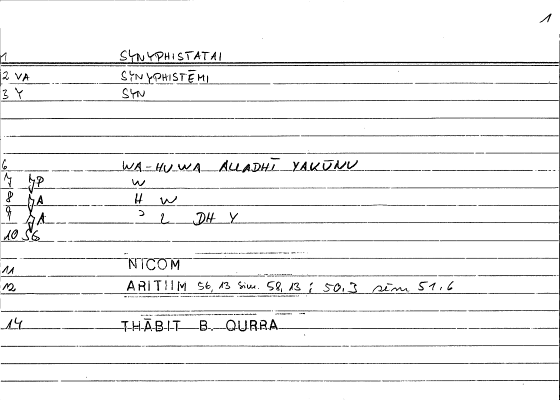 1
1 SYNYPHISTATAI
2 VA SYNYPHISTĒMI
3 Y SYN
6 WA-HUWA ALLADHĪ YAKŪNU
7 W
8 H W
9 ʾ L DH Y
10 56
11 NICOM
12 ARITIIM 56, 13 sim. 58, 13 ; 50.3 sim 51.6
14 THĀBIT B. QURRA